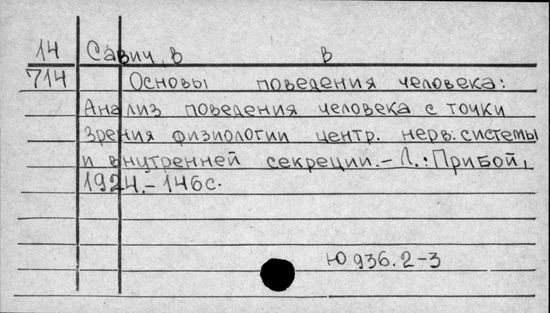 14 Савич, В В
714 Основы поведения человека:
Анализ поведения человека с точки
зрения физиологии центр. нерв. системы
и внутренней секреции.- Л.: Прибой,
1924.- 146с.
Ю 936.2-3